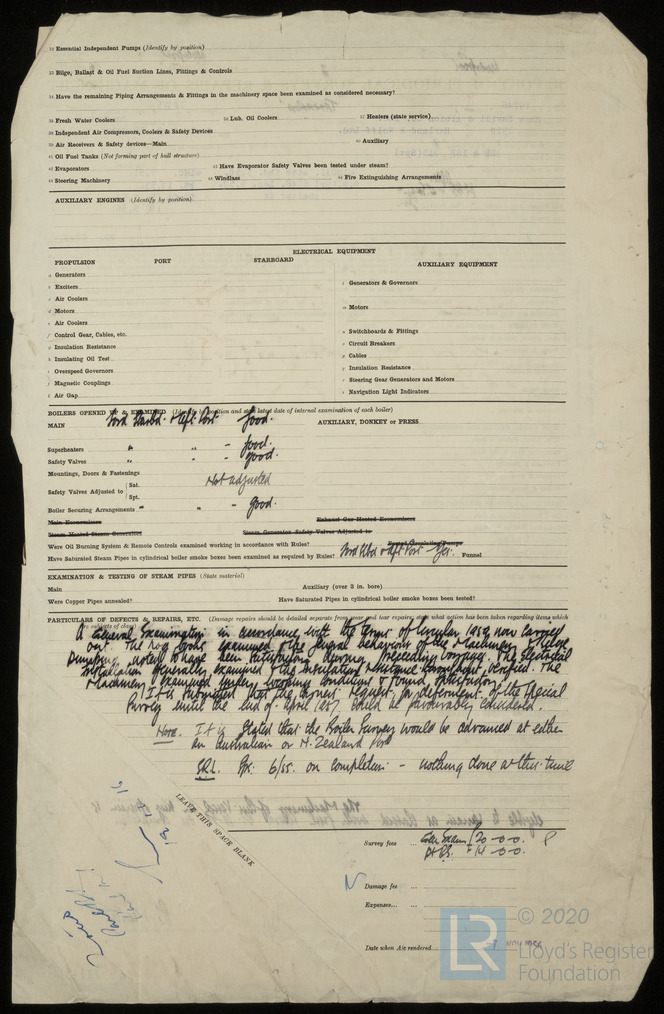 32 Essential Independent Pumps (Identify by position)
33 Bilge, Ballast & Oil Fuel Suction Lines, Fittings & Controls
34 Have the remaining Piping Arrangements & Fittings in the machinery space been examined as considered necessary?
35 Fresh Water Coolers 36 Lub. Oil Coolers 37 Heaters (state service)
38 Independent Air Compressors, Coolers & Safety Devices
39 Air Receivers & Safety devices—Main 40 Auxiliary
41 Oil Fuel Tanks (Not forming part of hull structure)
42 Evaporators 43 Have Evaporator Safety Valves been tested under steam?
44 Steering Machinery 45 Windlass 46 Fire Extinguishing Arrangements
AUXILIARY ENGINES (Identify by position)
ELECTRICAL EQUIPMENT
PROPULSION PORT STARBOARD AUXILIARY EQUIPMENT
a Generators
b Exciters
c Air Coolers
d Motors
e Air Coolers
f Control Gear, Cables, etc.
g Insulation Resistance
h Insulating Oil Test
i Overspeed Governors
j Magnetic Couplings
k Air Gap
l Generators & Governors
m Motors
n Switchboards & Fittings
o Circuit Breakers
p Cables
q Insulation Resistance
r Steering Gear Generators and Motors
s Navigation Light Indicators
BOILERS OPENED UP & EXAMINED (Identify by position and state latest date of internal examination of each boiler)
MAIN Ford Starbd. & Aft Port Good. AUXILIARY, DONKEY or PRESS.
Superheaters " " - good.
Safety Valves " " - good.
Mountings, Doors & Fastenings
Safety Valves Adjusted to Sat. Spt. Not adjusted
Boiler Securing Arrangements " " - good.
Main Economisers Exhaust Gas Heated Economisers
Steam Heated Steam Generators Steam Generator Safety Valves Adjusted to
Were Oil Burning System & Remote Controls examined working in accordance with Rules?
Have Saturated Steam Pipes in cylindrical boiler smoke boxes been examined as required by Rules? Ford Stbd & Aft Port Yes. Funnel
EXAMINATION & TESTING OF STEAM PIPES (State material)
Main Auxiliary (over 3 in. bore)
Were Copper Pipes annealed? Have Saturated Steam Pipes in cylindrical smoke boxes been tested?
PARTICULARS OF DEFECTS & REPAIRS, ETC. (Damage repairs should be detailed separate from wear and tear repairs, and what action has been taken regarding items which
are subjects of class)
A General Examination in accordance with the terms of Circular 1959 now carried
out. The Log books examined & the general behaviour of the Machinery & Stone
Dumping, noted to have been satisfactory during preceding voyage. The Electrical
installation generally examined & the insulation resistance knowledge verified. The
Machinery examined under working conditions & found satisfactory.
It is submitted that the Owners request, for deferment of the Special
Survey until the end of April 1957 could be favourably considered.
Note. It is stated that the Boiler Survey would be advanced at either
an Australian or N. Zealand Port
SRL. Ps. 6/55. on completion - nothing done at this time
LEAVE THIS SPACE BLANK
Survey fees Gen Exam £20-0-0.
Pt B.S. £14-0-0.
Damage fee
Expenses
Date when A/c rendered NOV 1956
LR © 2020
Lloyd's Register
Foundation